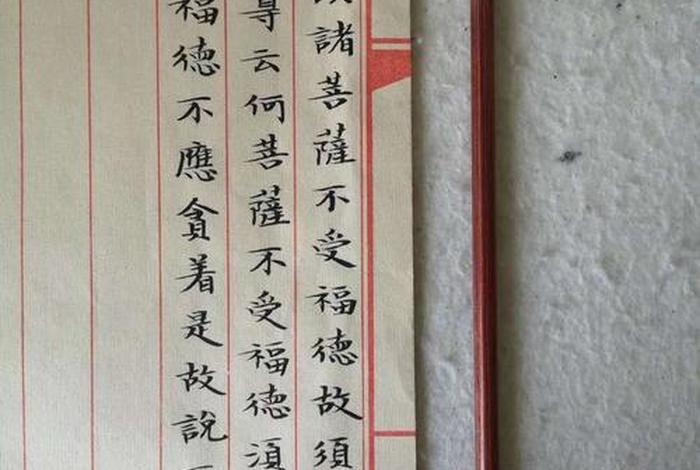 諸菩薩不受福德故須
尊云何菩薩不受福德湏
福德不應貪着是故說